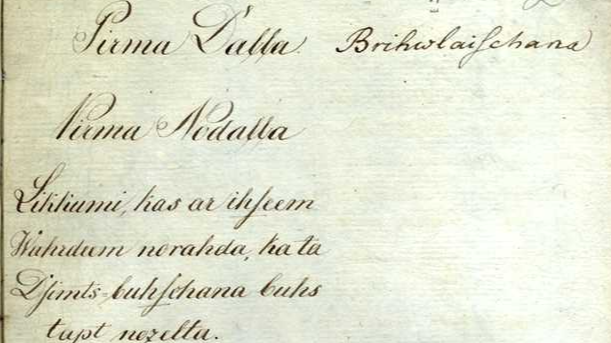 Pirma Daļļa. Brihwlaiſchana
Pirma Nodaļļa
Likkumi, kas ar ihſeem
Wahrdum norahda, ka ta
Dſimts-buhſchana buhs
tapt nozelta.